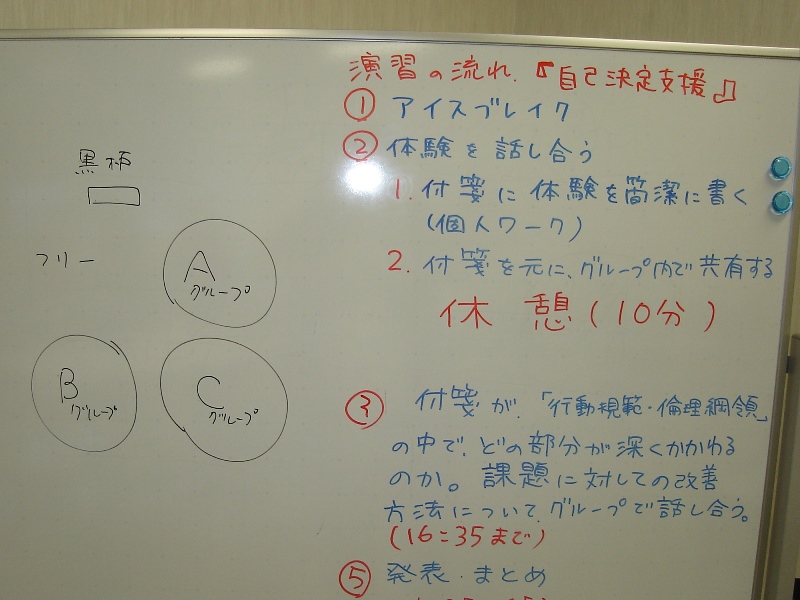 演習の流れ.『自己決定支援』
① アイスブレイク
② 体験を話し合う
1. 付箋に体験を簡潔に書く
(個人ワーク)
2. 付箋を元に、グループ内で共有する
休憩(10分)
③ 付箋が.「行動規範・倫理綱領」
の中で、どの部分が深くかかわる
のか。課題に対しての改善
方法について、グループで話し合う。
(16:35まで)
⑤ 発表.まとめ
フリー
A
グループ
B
グループ
C
グループ